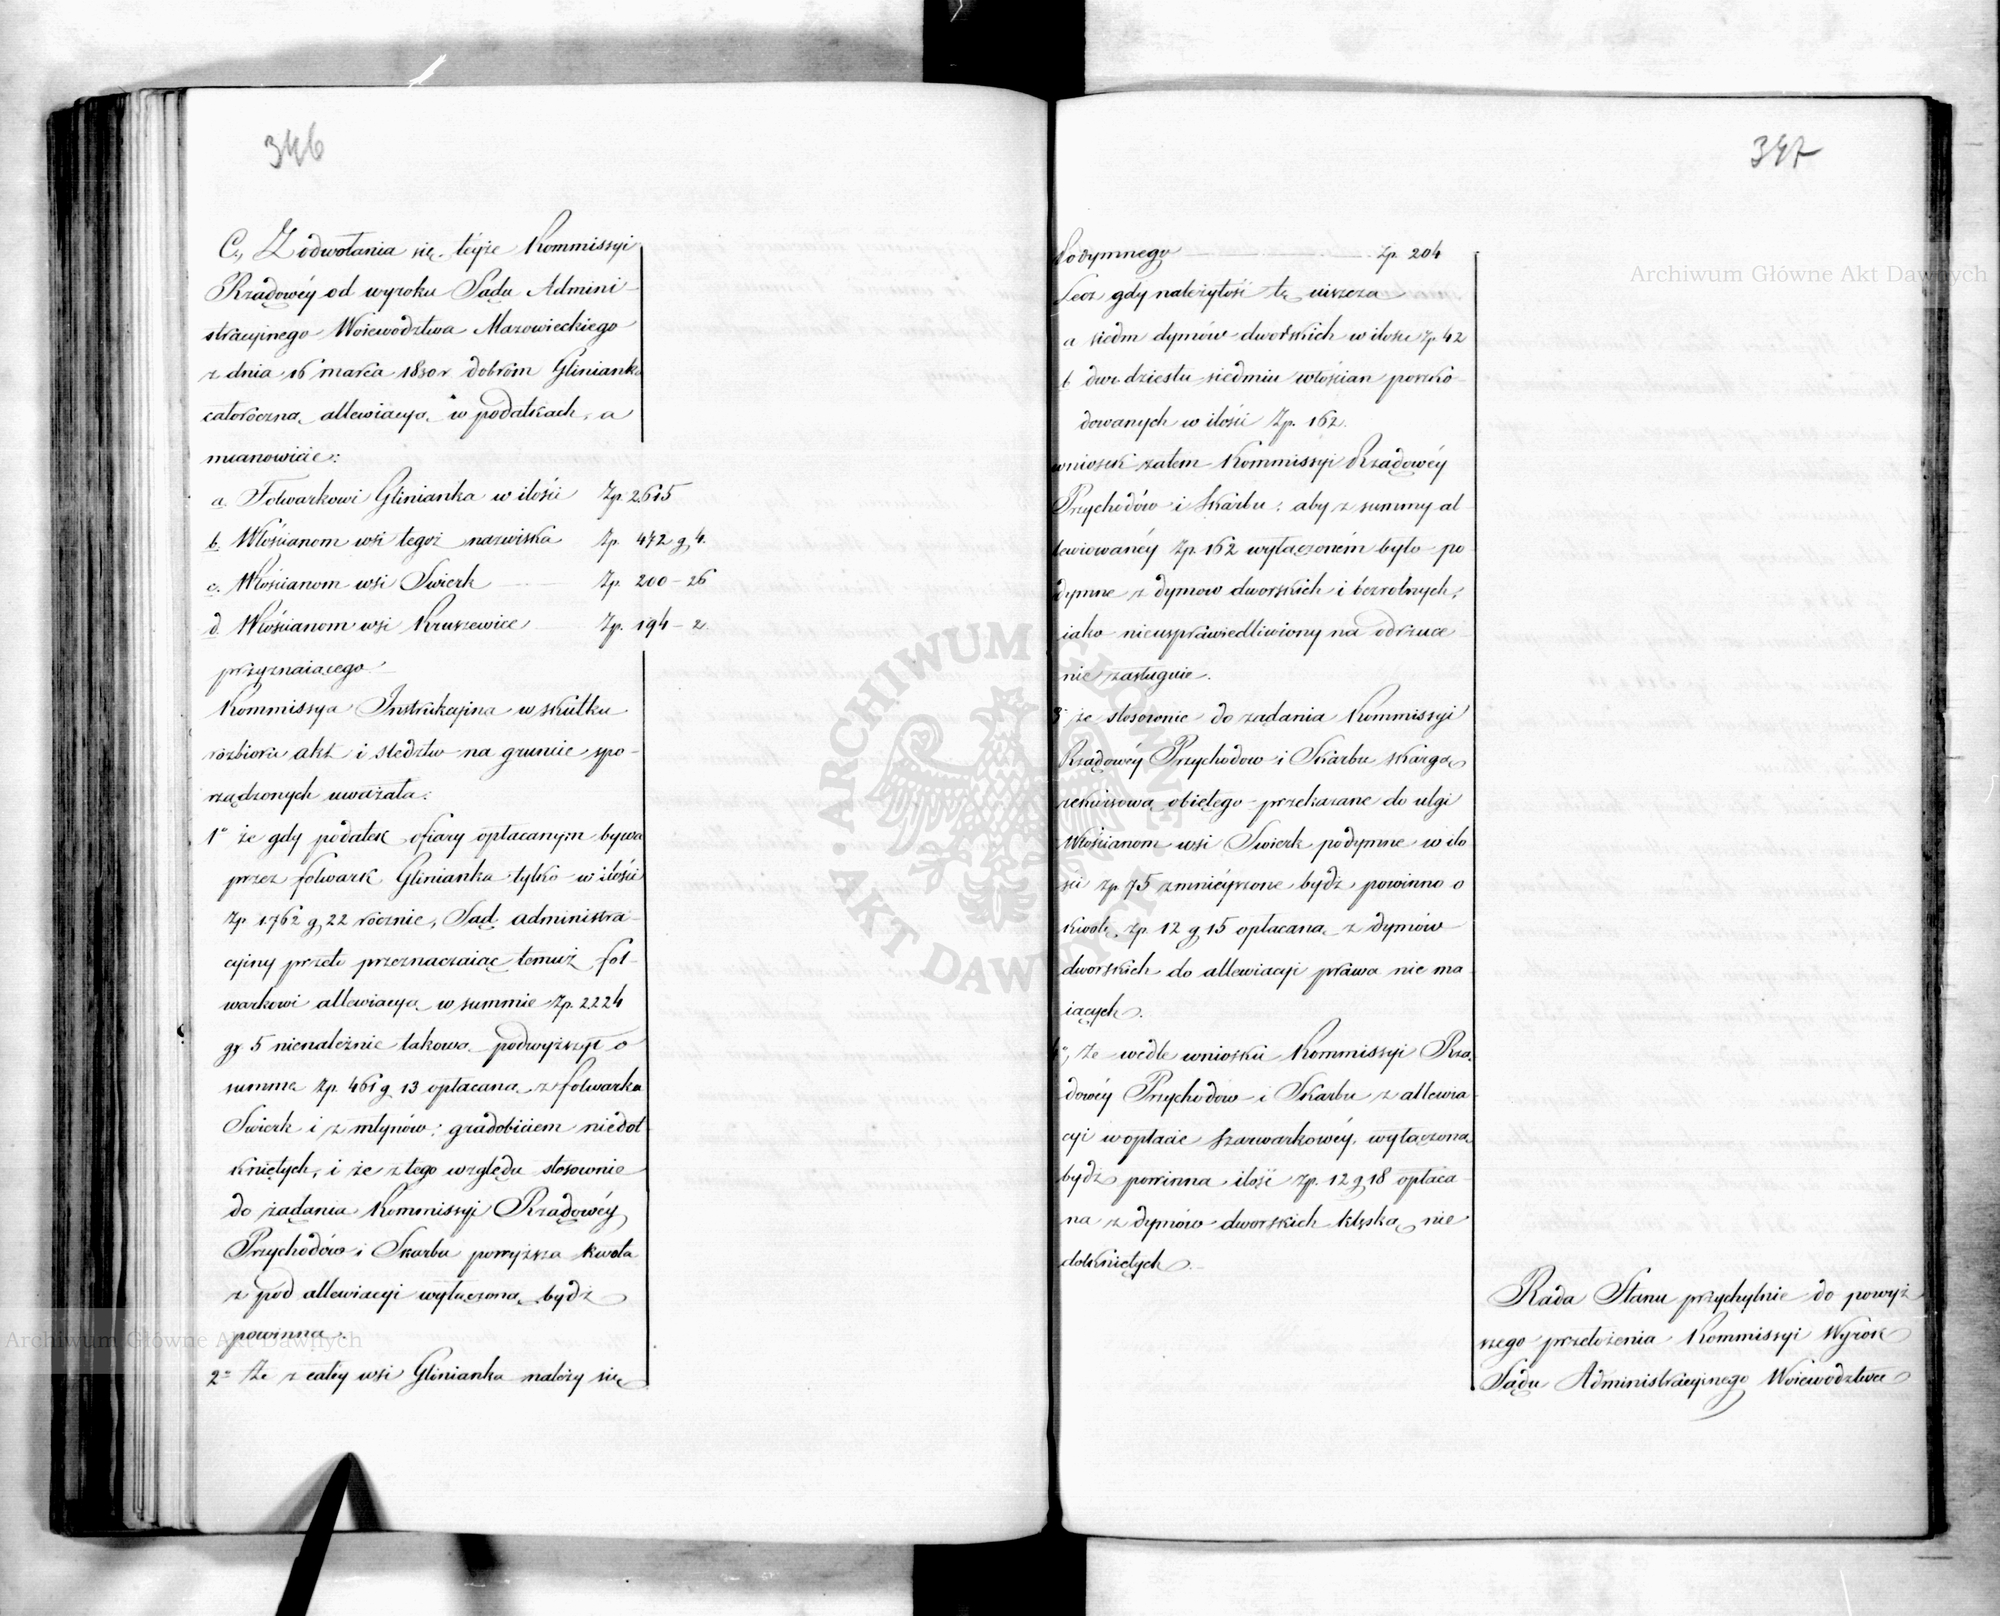 346
C., Z odwołania się teyże Kommissyi
Rządowéy od wyroku Sądu Admini-
stracyinego Woiewództwa Mazowieckiego
z dnia 16 marca 1830 r dobrom Glinianka
całoroczną allewiacyą w podatkach, a
mianowicie:
a. Folwarkowi Glinianka w ilości Zp. 2615
b. Włościanom wsi tegoż nazwiska Zp. 472 g 4.
c. Włościanom wsi Swierk Zp. 200 - 26
d. Włościanom wsi Kruszewiec Zp. 194 - 2.
przyznaiącego
Kommissya Instrukcyina w skutku
rozbioru akt i śledztw na gruncie spo-
rządzonych uważała:
1° że gdy podatek ofiary opłacanym bywa
przez folwark Glinianka tylko w ilości
Zp 1762 g 22 rocznie, Sąd administra-
cyiny przeto przeznaczaiąc temuż fol-
warkowi allewiacyą w summie Zp. 2224
gr 5 nienależnie takową podwyższył o
summę Zp. 461 g 13 opłacaną z folwarku
Swierk i z młynów; gradobiciem niedot-
kniętych, i że z tego względu stosownie
do żądania Kommissyi Rządowéy
Przychodów i Skarbu powyższa kwota
z pod allewiacyi wyłączoną bydź
powinna.
2° Że z całéy wsi Glinianka należy się
347
Podymnego Zp. 204
Lecz gdy należytość tę uiszcza
a siedm dymów dworskich w ilości Zp 42
b dwudziestu siedmiu włościan poszko-
dowanych w ilości Zp. 162.
wniosek zatem Kommissyi Rządowéy
Przychodów i Skarbu; aby z summy al-
lewiowanéy Zp. 162 wyłączoném było po-
dymne z dymow dworskich i bezrolnych,
iako nieusprawiedliwiony na odrzuce-
nie zasługuie.
3° że stosownie do żądania Kommissyi
Rządowéy Przychodow i Skarbu skargą
rekursową obiętego przekazane do ulgi
Włościanom wsi Swierk podymne w ilo
ści zp 75 zmnieyszone bydź powinno o
kwotę zp. 12 g 15 opłacaną z dymów
dworskich do allewiacyi prawa nie ma-
iących.
4°, Że wedle wniosku Kommissyi Rzą-
dowéy Przychodów i Skarbu z allewia-
cyi w opłacie szarwarkowéy, wyłączoną
bydź powinna ilość zp. 12 g 18 opłaca-
na z dymów dworskich klęską nie
dotkniętych.
Rada Stanu przychylnie do powyż-
szego przełożenia Kommissyi Wyrok
Sądu Administracyinego Woiewództwa
Archiwum Główne Akt Dawnych
ARCHIWUM GŁÓWNE • AKT DAWNYCH •
Archiwum Główne Akt Dawnych